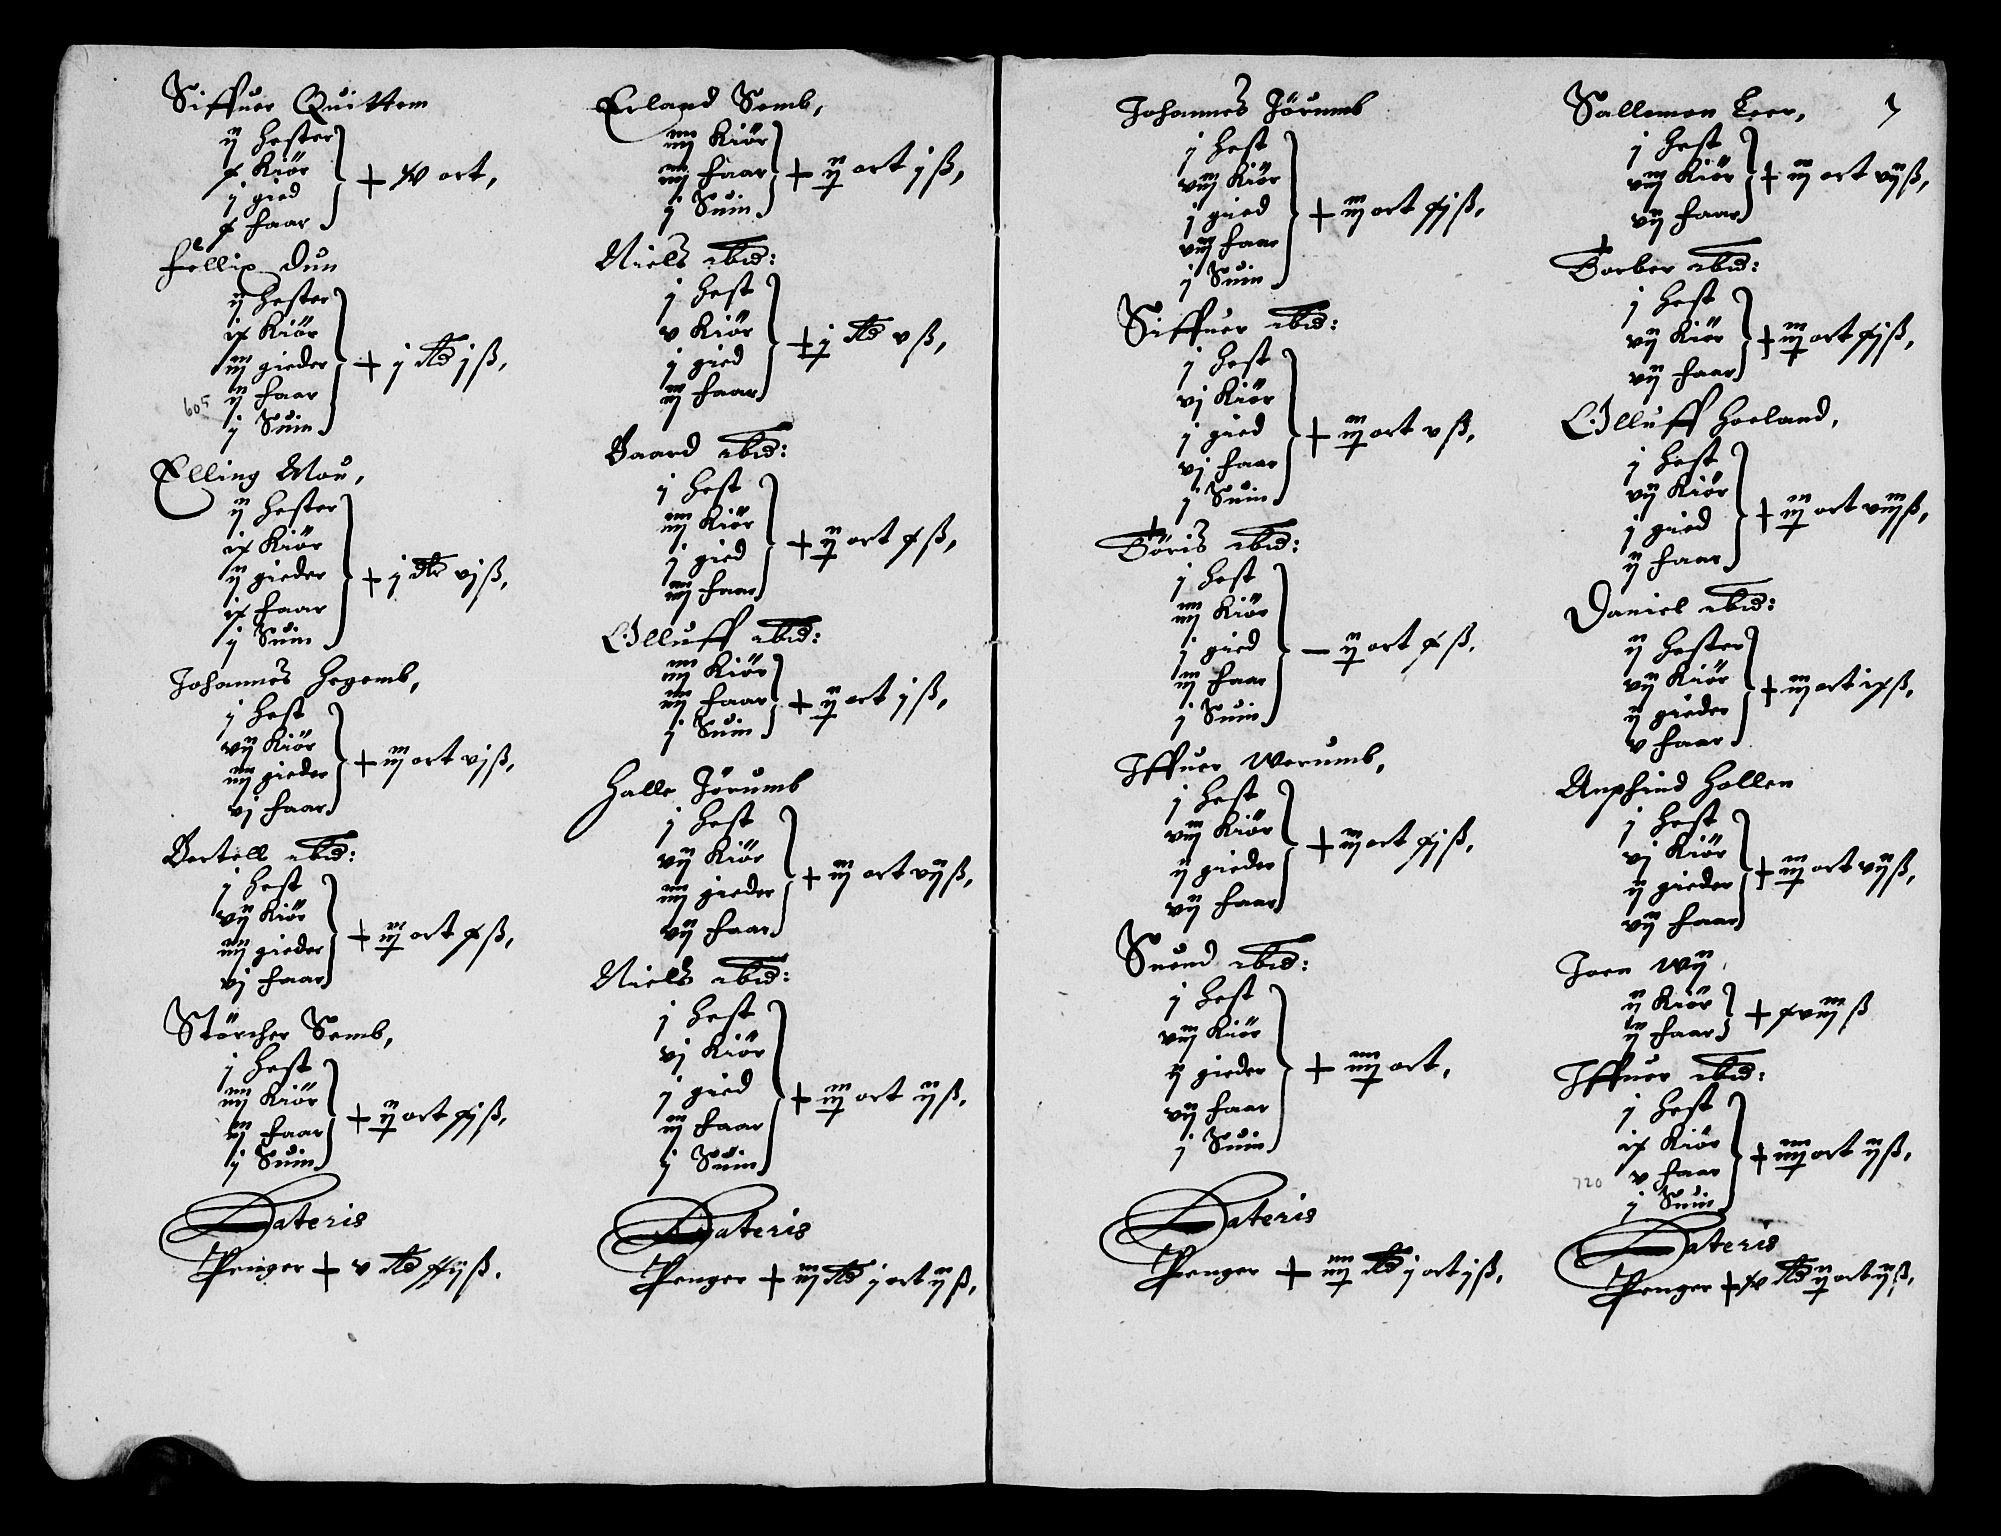 Siffuer Quittem
ij hester
x Kiör
j gied
x faar
+ xv ort,
fellix dun
ij hester
ix Kiör
iij gieder
ij faar
j Suin
+ j dlr j ß,
605
Elling Mou,
ij hester
ix Kiör
ij gieder
ix faar
j Suin
+ j dlr vj ß,
Johannes hegemb,
j hest
vij Kiör
iiij gieder
vj faar
+ iij ort vj ß,
Bertell ibid:
j hest
vij Kiör
iiij gieder
vj faar
+ iij ort x ß,
Störcher Semb,
j hest
iiij Kiör
vj faar
j Suin
+ ij ort xj ß,
Lateris
Penger + v dlr xxij ß.
Erland Semb,
iiij Kiör
iiij faar
j Suin
+ ij ort j ß,
Niels ibid:
j hest
v Kiör
j gied
iij faar
+ j dlr v ß,
Baard ibid:
j hest
iiij Kiör
j gied
iiij faar
+ ij ort x ß,
Olluff ibid:
iiij Kiör
iiij faar
j Suin
+ ij ort j ß,
Halle Jörumb
j hest
vij Kiör
iiij gieder
vij faar
+ iij ort vij ß,
Niels ibid:
j hest
vj Kiör
j gied
iij faar
j Suin
+ iij ort ij ß,
Lateris
Penger + iij dlr j ort ij ß,
Johannes Jörumb
j hest
viij Kiör
j gied
viij faar
j Suin
+ iij ort xj ß,
Siffuer ibid:
j hest
vj Kiör
j gied
vj faar
j Suin
+ iij ort v ß,
Töris ibid:
j hest
iiij Kiör
j gied
iij faar
j Suin
— ij ort x ß.
Iffuer Werumb,
j hest
viij Kiör
ij gieder
vij faar
+ iij ort xj ß,
Suend ibid:
j hest
viij Kiör
ij gieder
vij faar
j Suin
+ iiij ort,
Lateris
Penger + iiij dlr j ort j ß,
7
Sallemon Leer,
j hest
viij Kiör
vij faar
+ iij ort vij ß,
Torber ibid:
j hest
vij Kiör
vij faar
+ iij ort xj ß,
Olluff Hoeland,
j hest
vij Kiör
j gied
ij faar
+ iij ort viij ß,
Daniel ibid:
ij hester
vij Kiör
ij gieder
v faar
+ iij ort ix ß,
Anphind Hollen
j hest
vj Kiör
ij gieder
vij faar
+ iij ort vij ß,
Joen Wij,
ij Kiör
ij faar
+ xviij ß
Iffuer ibid:
j hest
ix Kiör
v faar
j Suin
+ iiij ort ij ß,
720
Lateris
Penger + xv dlr ij ort ij ß,